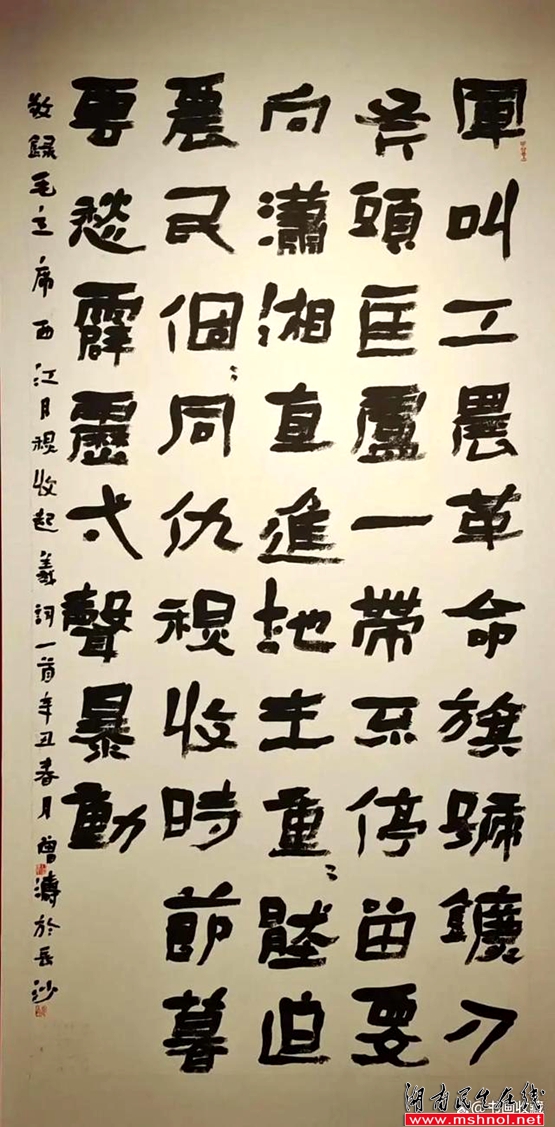 軍叫工農革命旗號鐮刀
斧頭匡廬一帶不停留要
向瀟湘直進地主重〻壓迫
農民個〻同仇秋收時節暮
雲愁霹靂一聲暴動
敬錄毛主席西江月秋收起義詞一首辛丑春月曾濤於長沙
湖南民生在线
www.mshnol.net